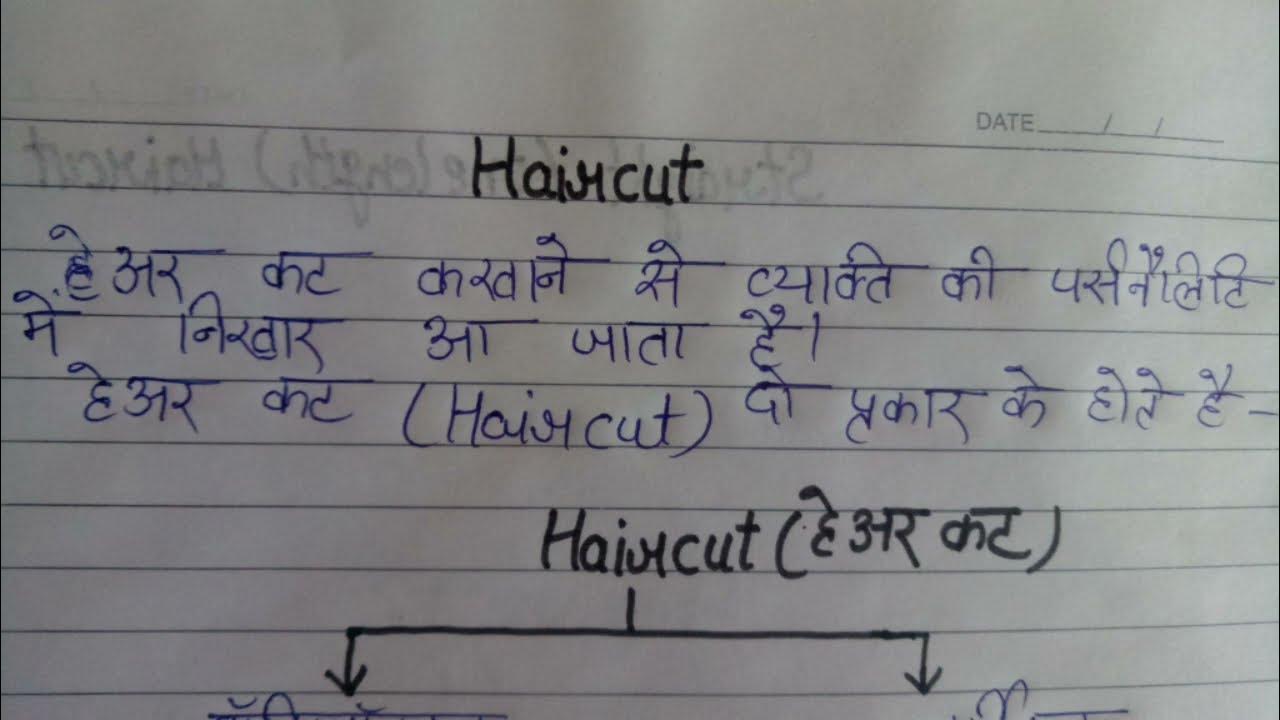 DATE / /
Haircut
हेअर कट करवाने से व्याक्ति की पर्सनैलिटि
में निखार आ जाता है।
हेअर कट (Haircut) दो प्रकार के होते है-
Haircut (हेअर कट)